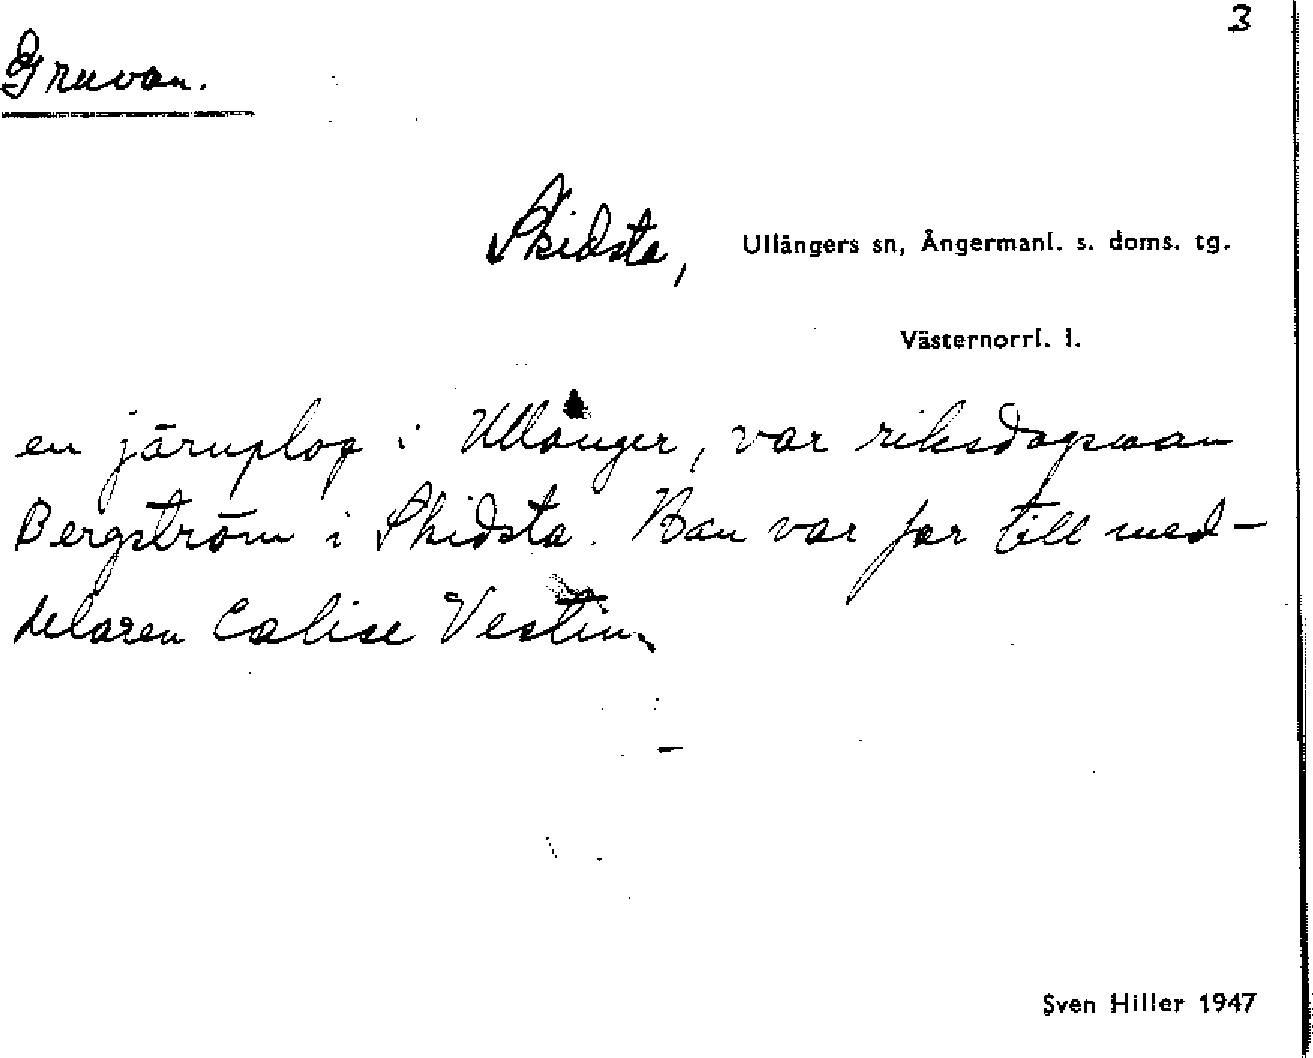 3
Gruvan.
Skidsta, Ullångers sn, Ångermanl. s. doms. tg.
Västernorrl. l.
en järnplog i Ullånger, var riksdagsman
Bergström i Skidsta. Han var far till med-
delaren Calise Vestin.
Sven Hiller 1947